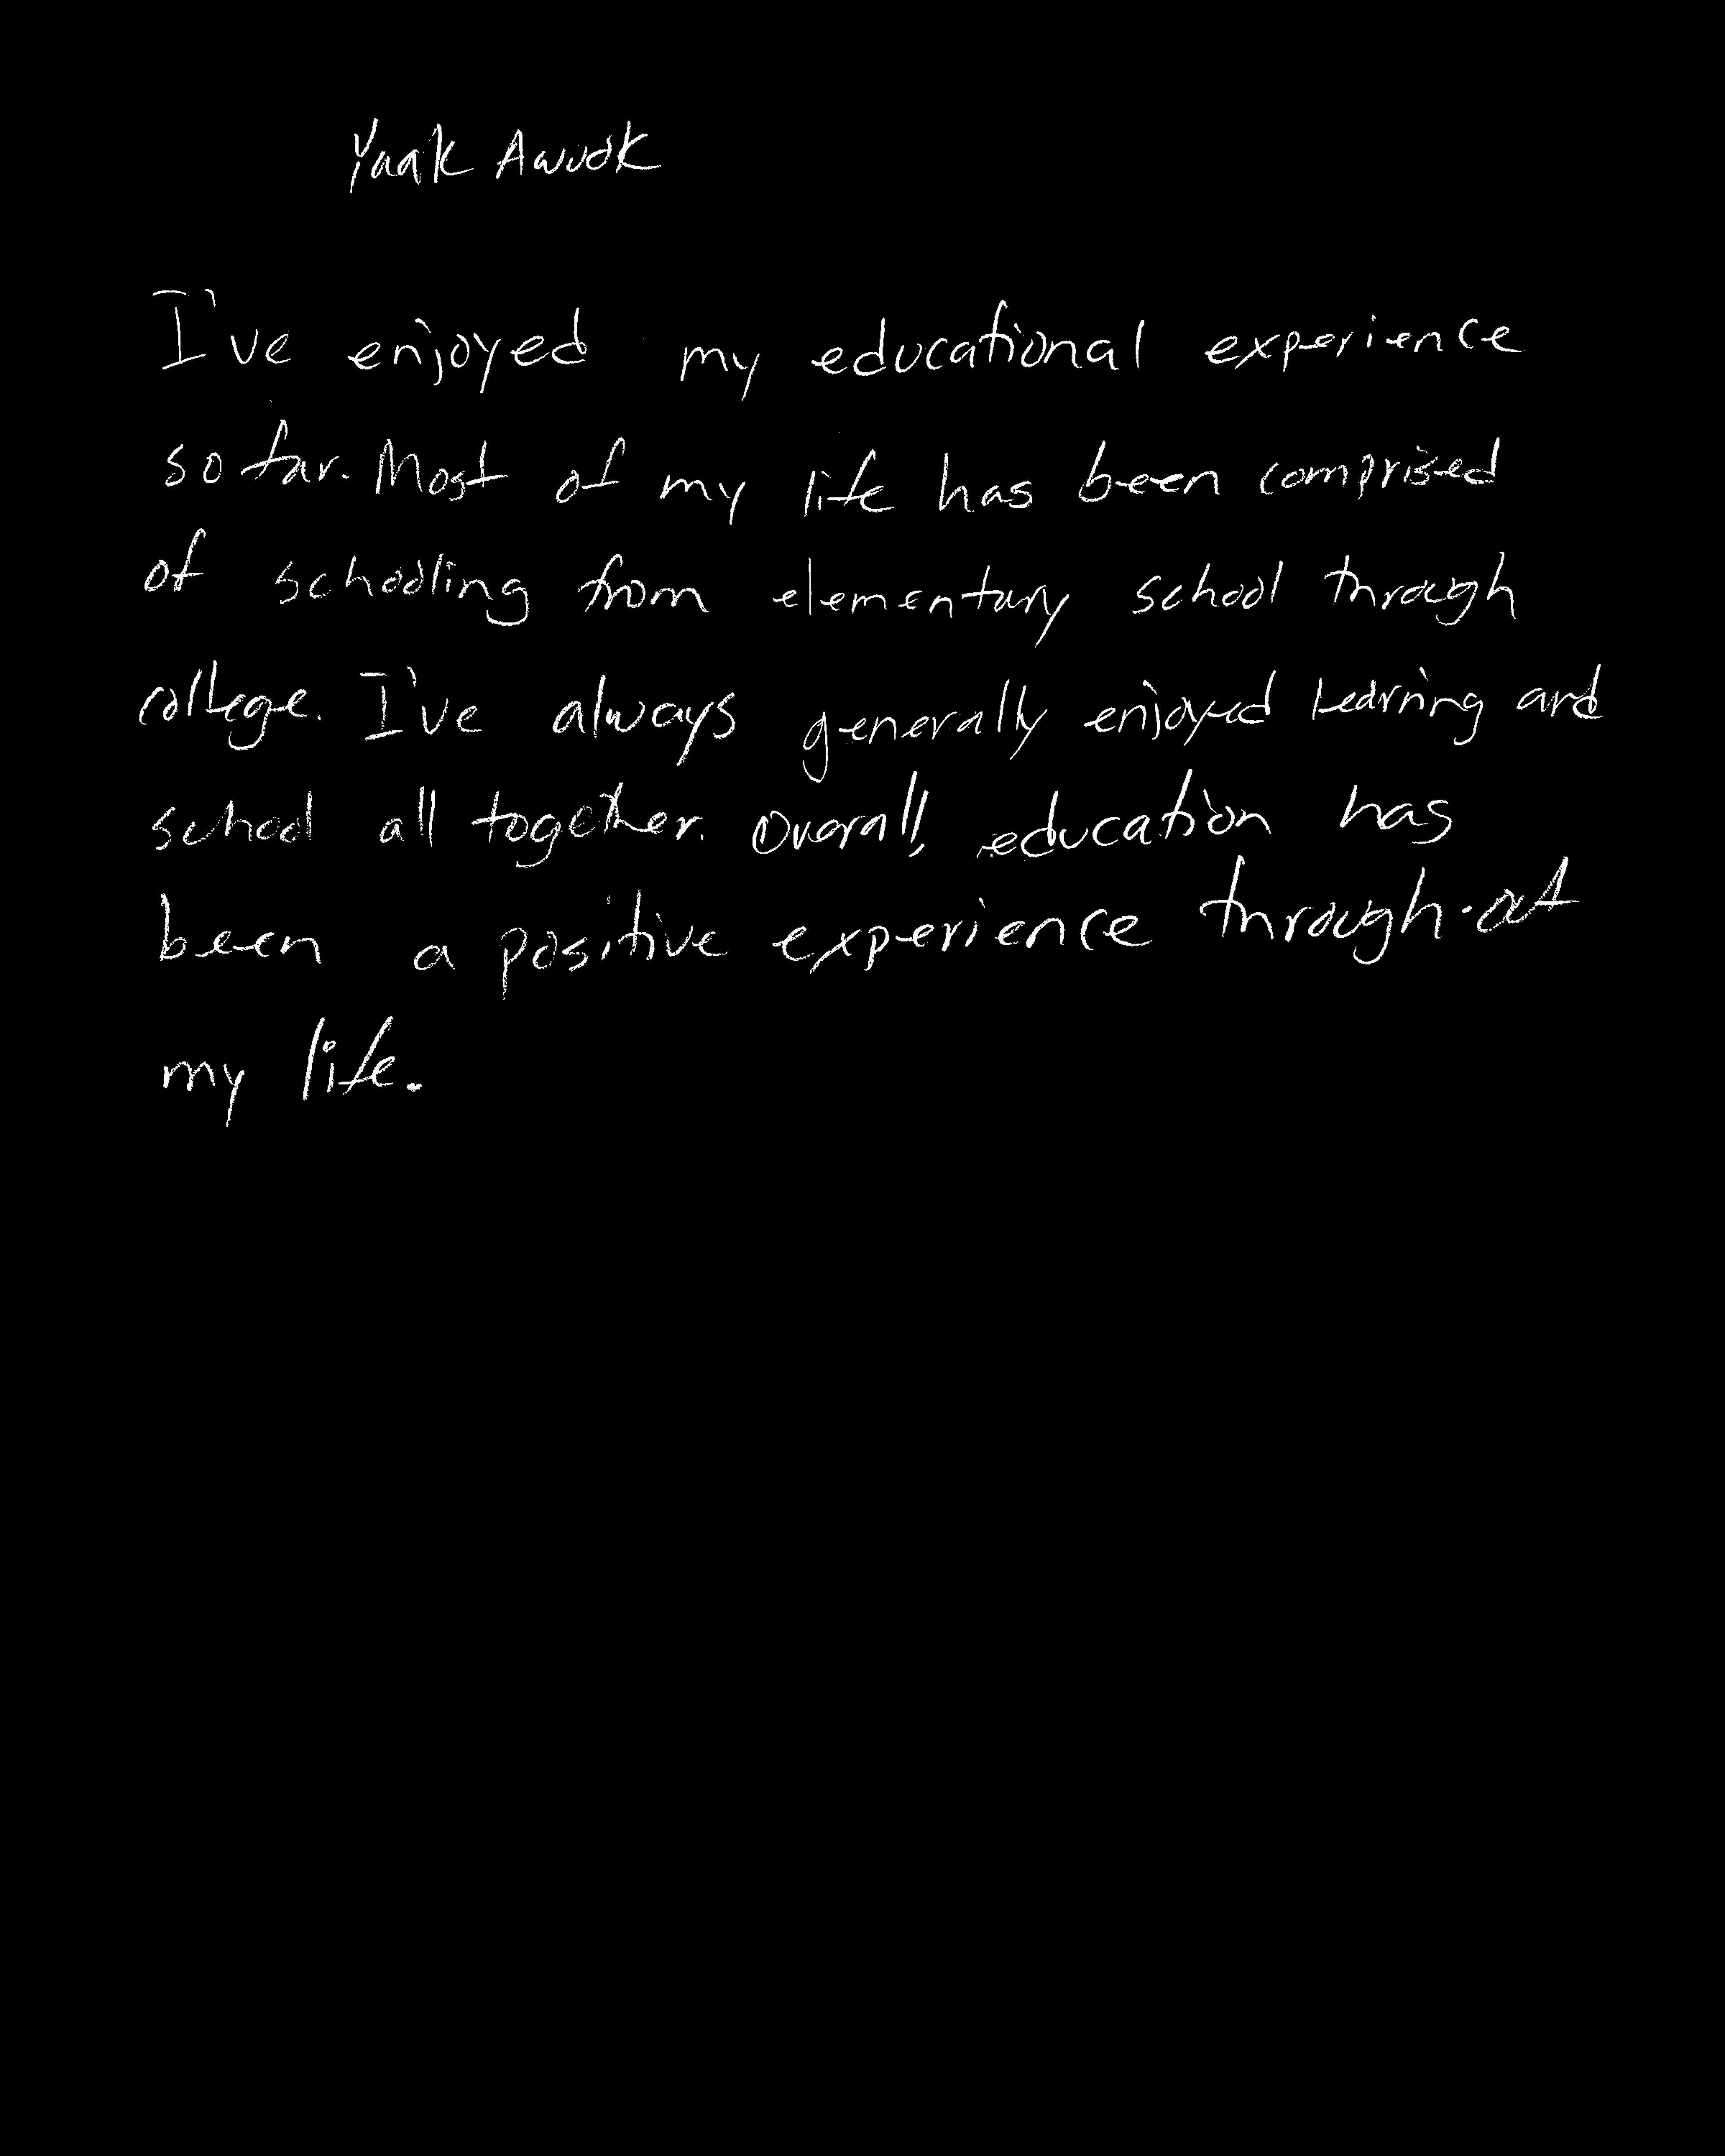 Yaak Awuok
I've enjoyed my educational experience
so far. Most of my life has been comprised
of schooling from elementary school through
college. I've always generally enjoyed learning and
school all together. Overall, education has
been a positive experience through-out
my life.